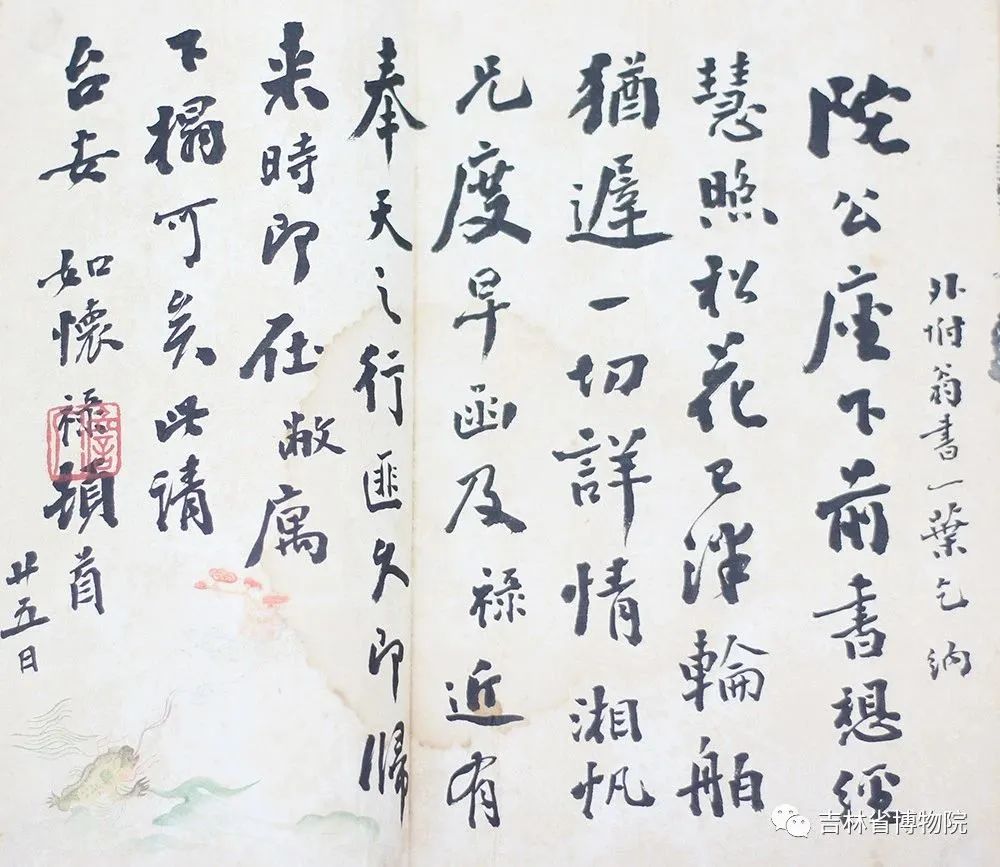 外坿翁書一葉乞 納
陀公座下前書想經
慧照松花已泮輪舶
猶遲一切詳情湘帆
兄度早函及祿近有
奉天之行匪久即歸
来時即在敝厲
下榻可矣此請
台安 如懷祿頓首
廿五日
吉林省博物院